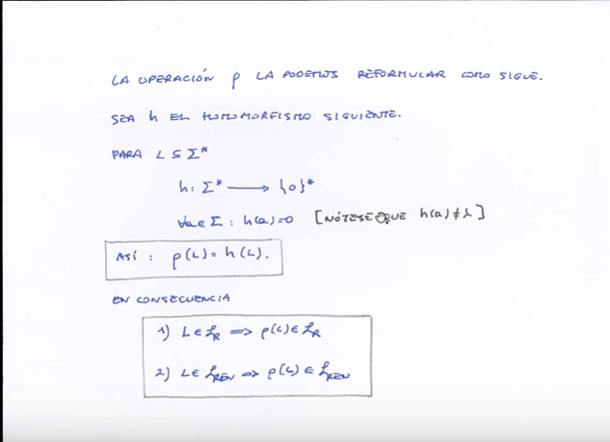 LA OPERACIÓN ρ LA PODEMOS REFORMULAR COMO SIGUE.
SEA h EL HOMOMORFISMO SIGUIENTE.
PARA L ⊆ Σ*
h: Σ* ⟶ {0}*
∀a∈Σ: h(a)=0 [NÓTESE QUE h(a)≠λ]
ASÍ : ρ(L)=h(L).
EN CONSECUENCIA
1) L∈ℒ_R ⟹ ρ(L)∈ℒ_R
2) L∈ℒ_REN ⟹ ρ(L)∈ℒ_REN